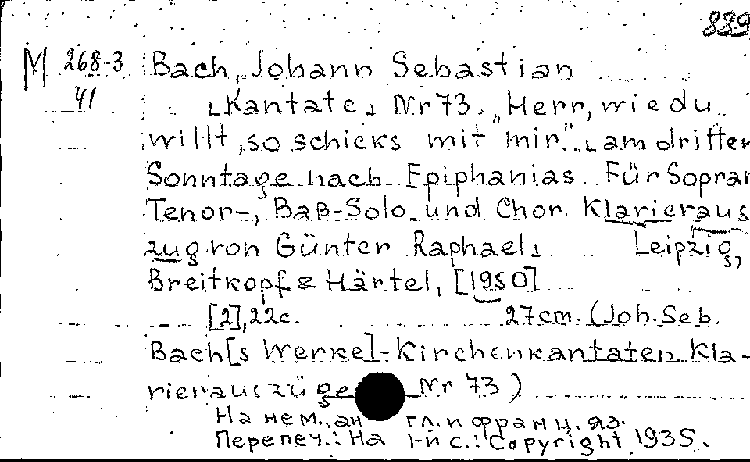 839
M 268-3 Bach, Johann Sebastian
41 [Kantate] Nr 73. „Herr, wie du
willt, so schicks mit mir". [am dritten
Sonntage nach Epiphanias. Für Sopran
Tenor-, Baß-Solo und Chor. Klavieraus
zug von Günter Raphael] Leipzig,
Breitkopf & Härtel, [1950]
[2], 22 с. 27 cm. (Joh. Seb.
Bach[s Werke]-Kirchenkantaten Kla-
vierauszüge Nr 73)
На нем., англ. и франц. яз.
Перепеч.: На 1-й с.: Copyright 1935.